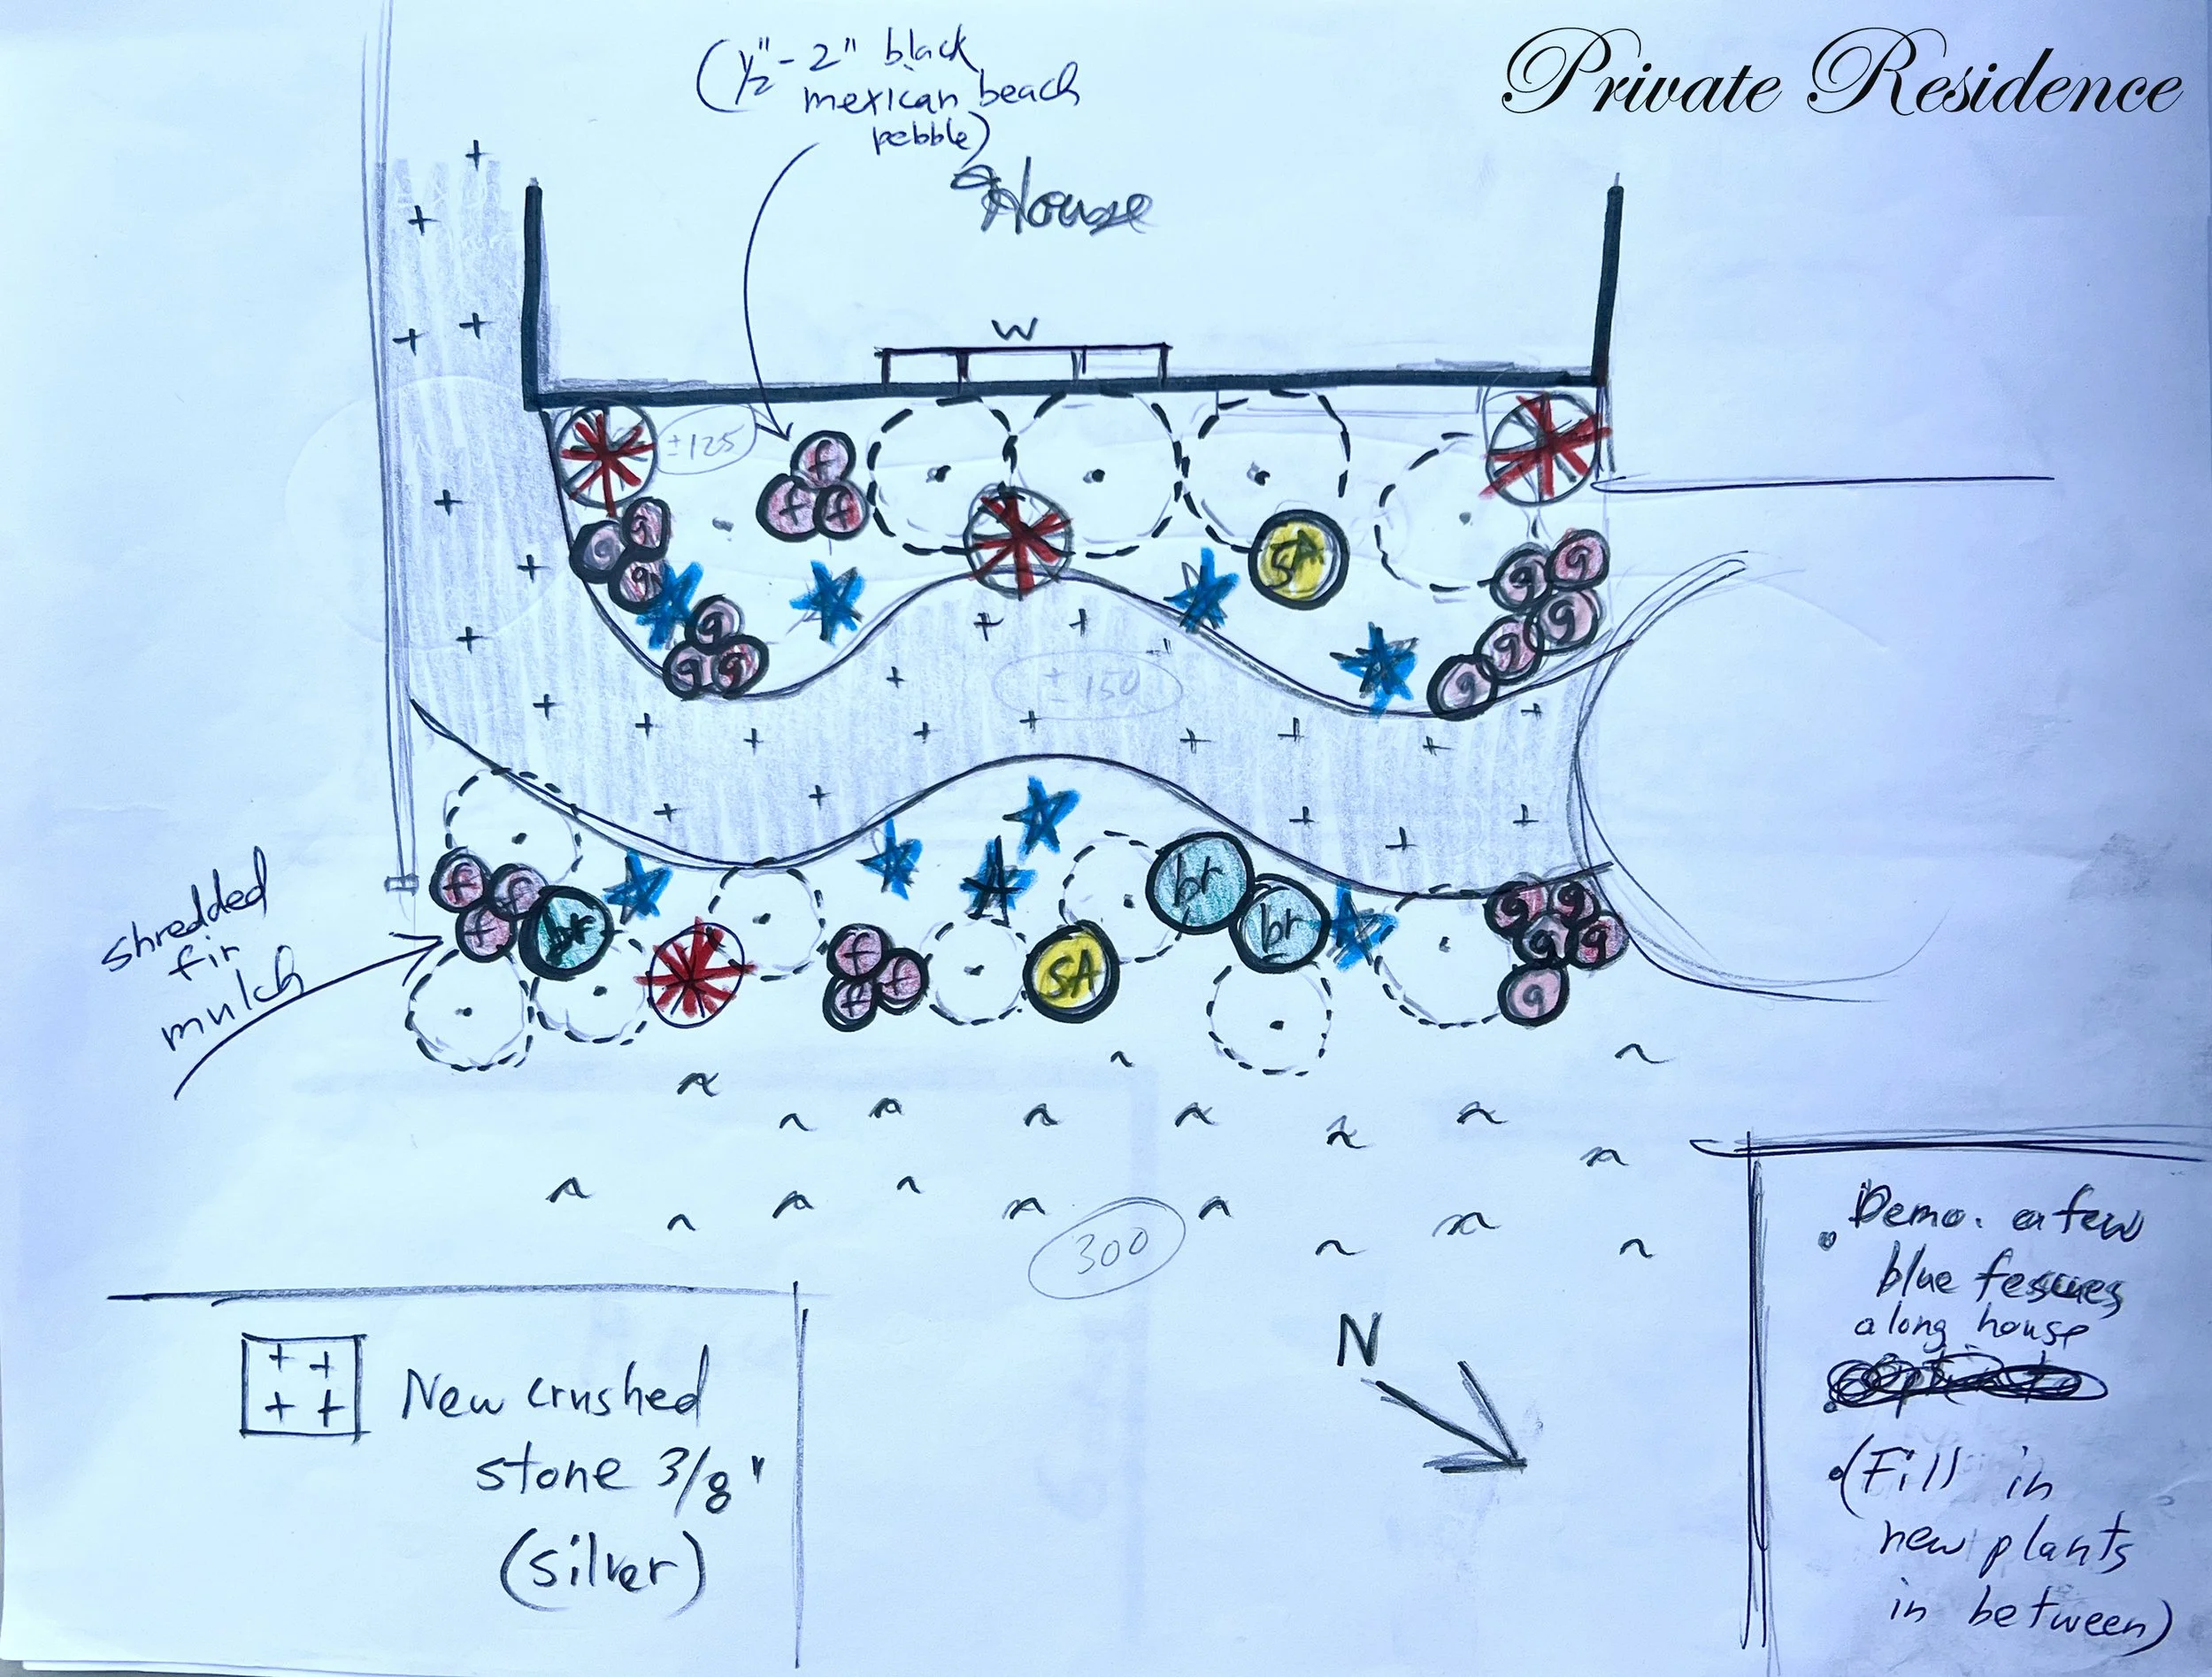 Private Residence
(1/2" - 2" black
mexican beach
pebble)
House
W
±125
f
f f
g
g
g
SA
g
g g
g g
g
g
g
± 150
shredded
fir
mulch
f f
f
br
f
f f
SA
br
br
g g
g g
g
300
N
Demo. a few
blue fescues
along house
(Fill in
new plants
in between)
+ +
+ +
New crushed
stone 3/8"
(silver)